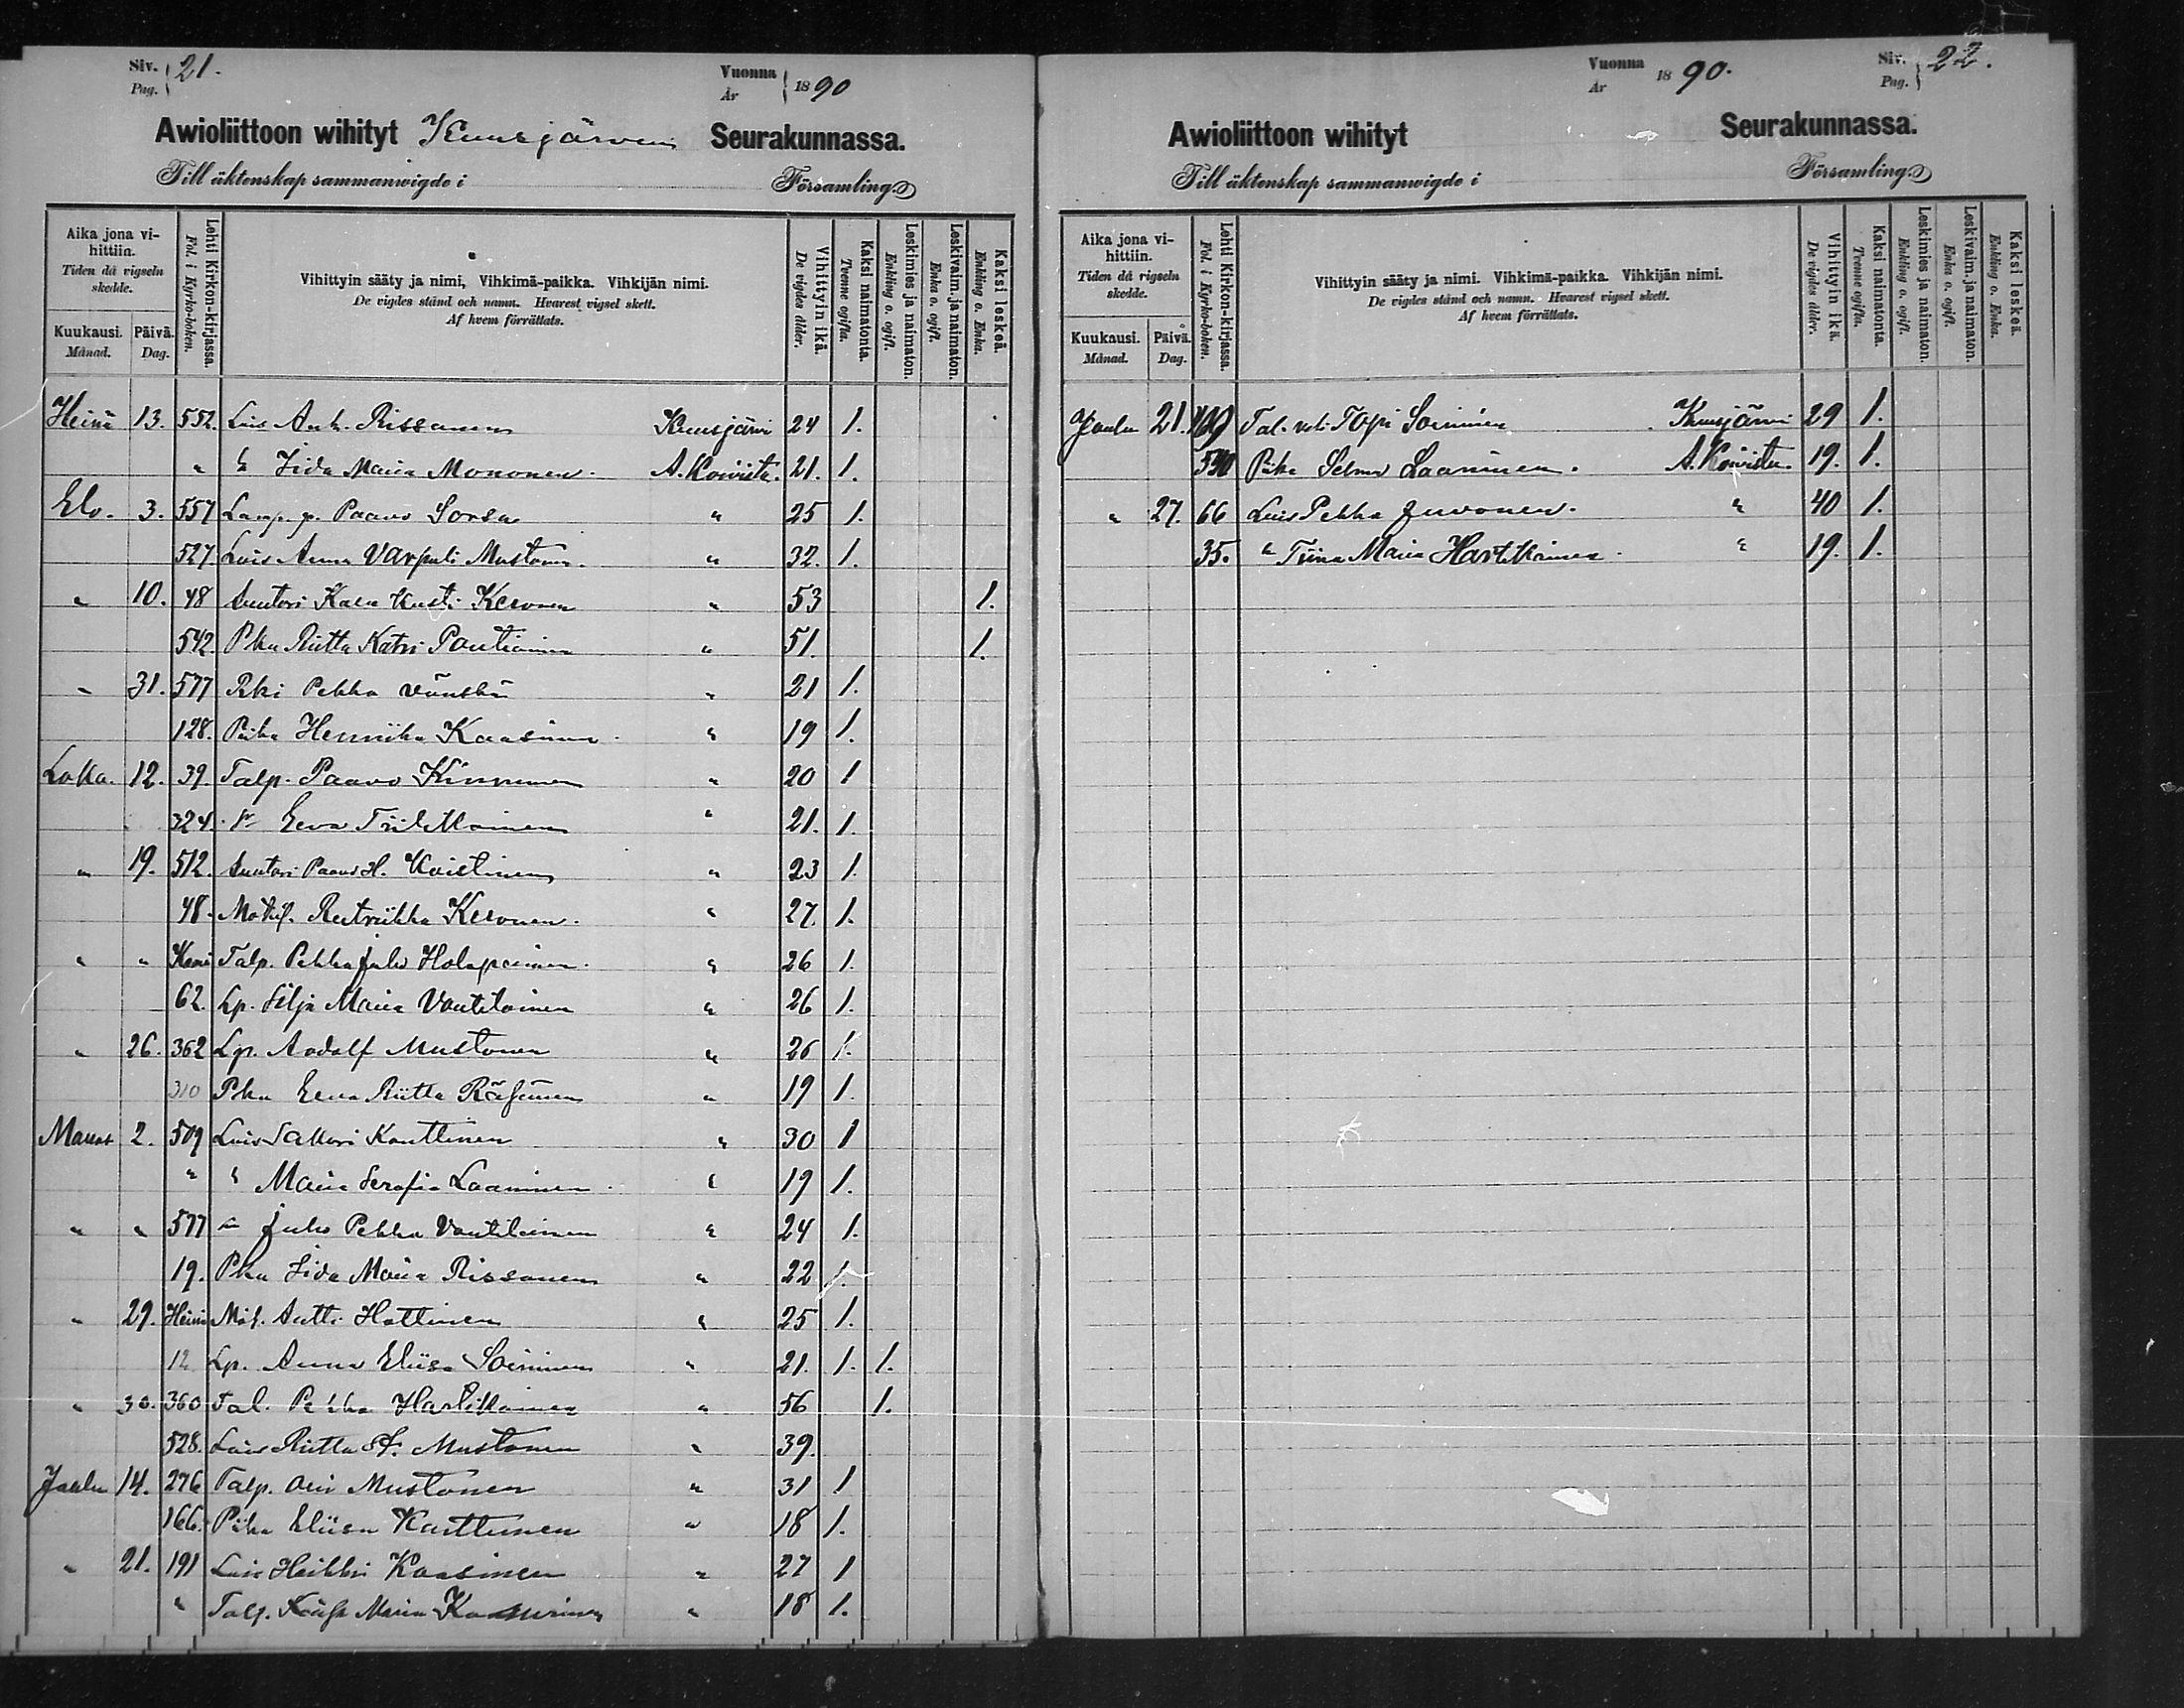 Siv. Pag. 21. Vuonna År 1890
Awioliittoon wihityt Kuusjärven Seurakunnassa.
Till äktenskap sammanwigde i Församling
Aika jona vihittiin. Tiden då vigseln skedde.
Kuukausi. Månad. Päivä. Dag.
Lehti Kirkon-kirjassa. Fol. i Kyrko-boken.
Vihittyin sääty ja nimi, Vihkimä-paikka. Vihkijän nimi.
De vigdes stånd och namn. Hvarest vigsel skett.
Af hvem förrättats.
Vihittyin ikä. De vigdes ålder.
Kaksi naimatonta. Tvenne ogifta.
Leskimies ja naimaton. Enkling o. ogift.
Leskivaim. ja naimaton. Enka o. ogift.
Kaksi leskeä. Enkling o. Enka.
Heinä 13. 552. Lois Ant. Rissanen Kuusjärvi 24 1.
" " Iida Maria Mononen. A. Koivisto. 21. 1.
Elo. 3. 557 Paavo Sorsa " 25 1.
527 Lois Anna Varpuli Mustonen. " 32. 1.
" 10. 48 Suutari Kusti Keronen " 53 1.
542. Pka Riitta Katri Pantiainen " 51. 1.
" 31. 577 Rki Pekka Vänskä " 21 1.
128. Piika Henriika Kaasinen " 19 1.
Loka. 12. 39. Talp. Paavo Kinnunen " 20 1
324. Eeva Tiilikkainen " 21. 1.
" 19. 512. Suutari Paavo H. Koistinen " 23 1.
48. Reetriikka Keronen. " 27. 1.
" " Talp. Pekka Juho Holapainen. " 26 1.
62. Lp. Silja Maria Vantilainen " 26 1.
" 26. 362 Lp. Aadolf Mustonen " 26 1.
310 Pka Eeva Riitta Räsänen " 19 1.
Marras 2. 509 Lois Sakari Konttinen " 30 1
" " Maria Serafia Laaninen " 19 1.
" " 577 " Juho Pekka Vantilainen " 24 1.
19. Pka Iida Maria Rissanen " 22 1.
" 29. Antti Hottinen " 25 1.
12 Lp. Anna Eliisa Soininen " 21. 1. 1.
" 30. 360 Tal. Pekka Hartikainen " 56 1.
528. Lois Riitta St. Mustonen " 39.
Joulu 14. 276 Talp. Olli Mustonen " 31 1
166. Piika Eliisa Karttunen " 18 1.
" 21. 191 Lois Heikki Kaasinen " 27 1
" Talp. Maria " 18 1.
Vuonna År 1890. Siv. Pag. 22.
Awioliittoon wihityt Seurakunnassa.
Till äktenskap sammanwigde i Församling
Aika jona vihittiin. Tiden då vigseln skedde.
Kuukausi. Månad. Päivä. Dag.
Lehti Kirkon-kirjassa. Fol. i Kyrko-boken.
Vihittyin sääty ja nimi. Vihkimä-paikka. Vihkijän nimi.
De vigdes stånd och namn. Hvarest vigsel skett.
Af hvem förrättats.
Vihittyin ikä. De vigdes ålder.
Kaksi naimatonta. Tvenne ogifta.
Leskimies ja naimaton. Enkling o. ogift.
Leskivaim. ja naimaton. Enka o. ogift.
Kaksi leskeä. Enkling o. Enka.
Joulu 21. Tal. veli Topi Soininen Kuusjärvi 29 1.
Piika Selma Laaninen. A. Koivisto. 19. 1.
" 27. 66 Lois Pekka Juvonen. " 40 1.
35. " Tiina Maria Hartikainen " 19. 1.